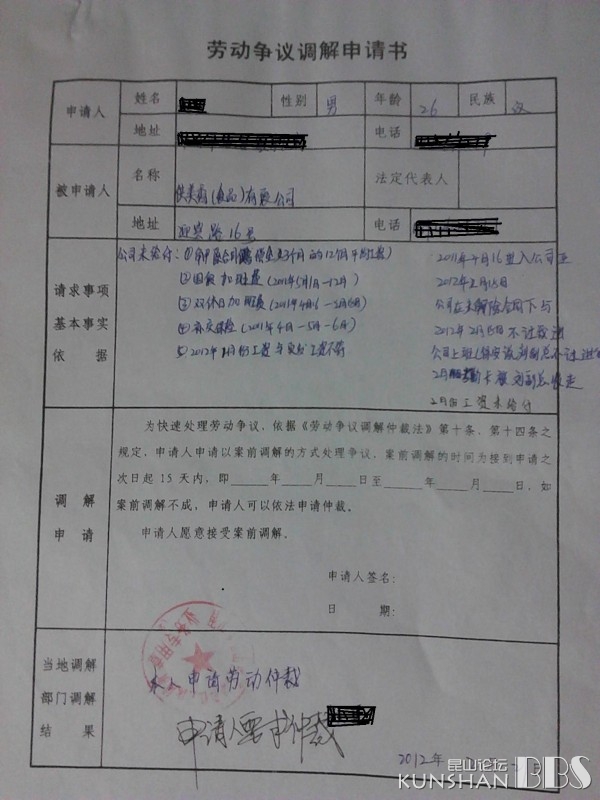 劳动争议调解申请书
申请人
姓名
性别 男
年龄 26
民族 汉
地址
电话
被申请人
名称 (食品)有限公司
法定代表人
地址 迎宾路16号
电话
请求事项
基本事实
依据
公司未给付：①
②国假加班费(2011年5月1日-12月)
③双休日加班费(2011年4月6-
④补交保险(2011年4月-5月-6月)
⑤2012年 月份工资
2011年4月16 入公司至
2012年2月15日
公司在未解除合同下与
2012年2月15日不让我进
公司上班(保安说刘副总不让进
2月 卡被刘副总收走
2月份工资未给付
为快速处理劳动争议，依据《劳动争议调解仲裁法》第十条、第十四条之
规定，申请人申请以案前调解的方式处理争议，案前调解的时间为接到申请之
次日起15天内，即____年____月____日至____年____月____日，如
案前调解不成，申请人可以依法申请仲裁。
申请人愿意接受案前调解.
调解
申请
申请人签名:
日 期:
当地调解
部门调解
结果
本人申请劳动仲裁
申请人要求仲裁
2012年
昆山论坛
KUNSHAN BBS